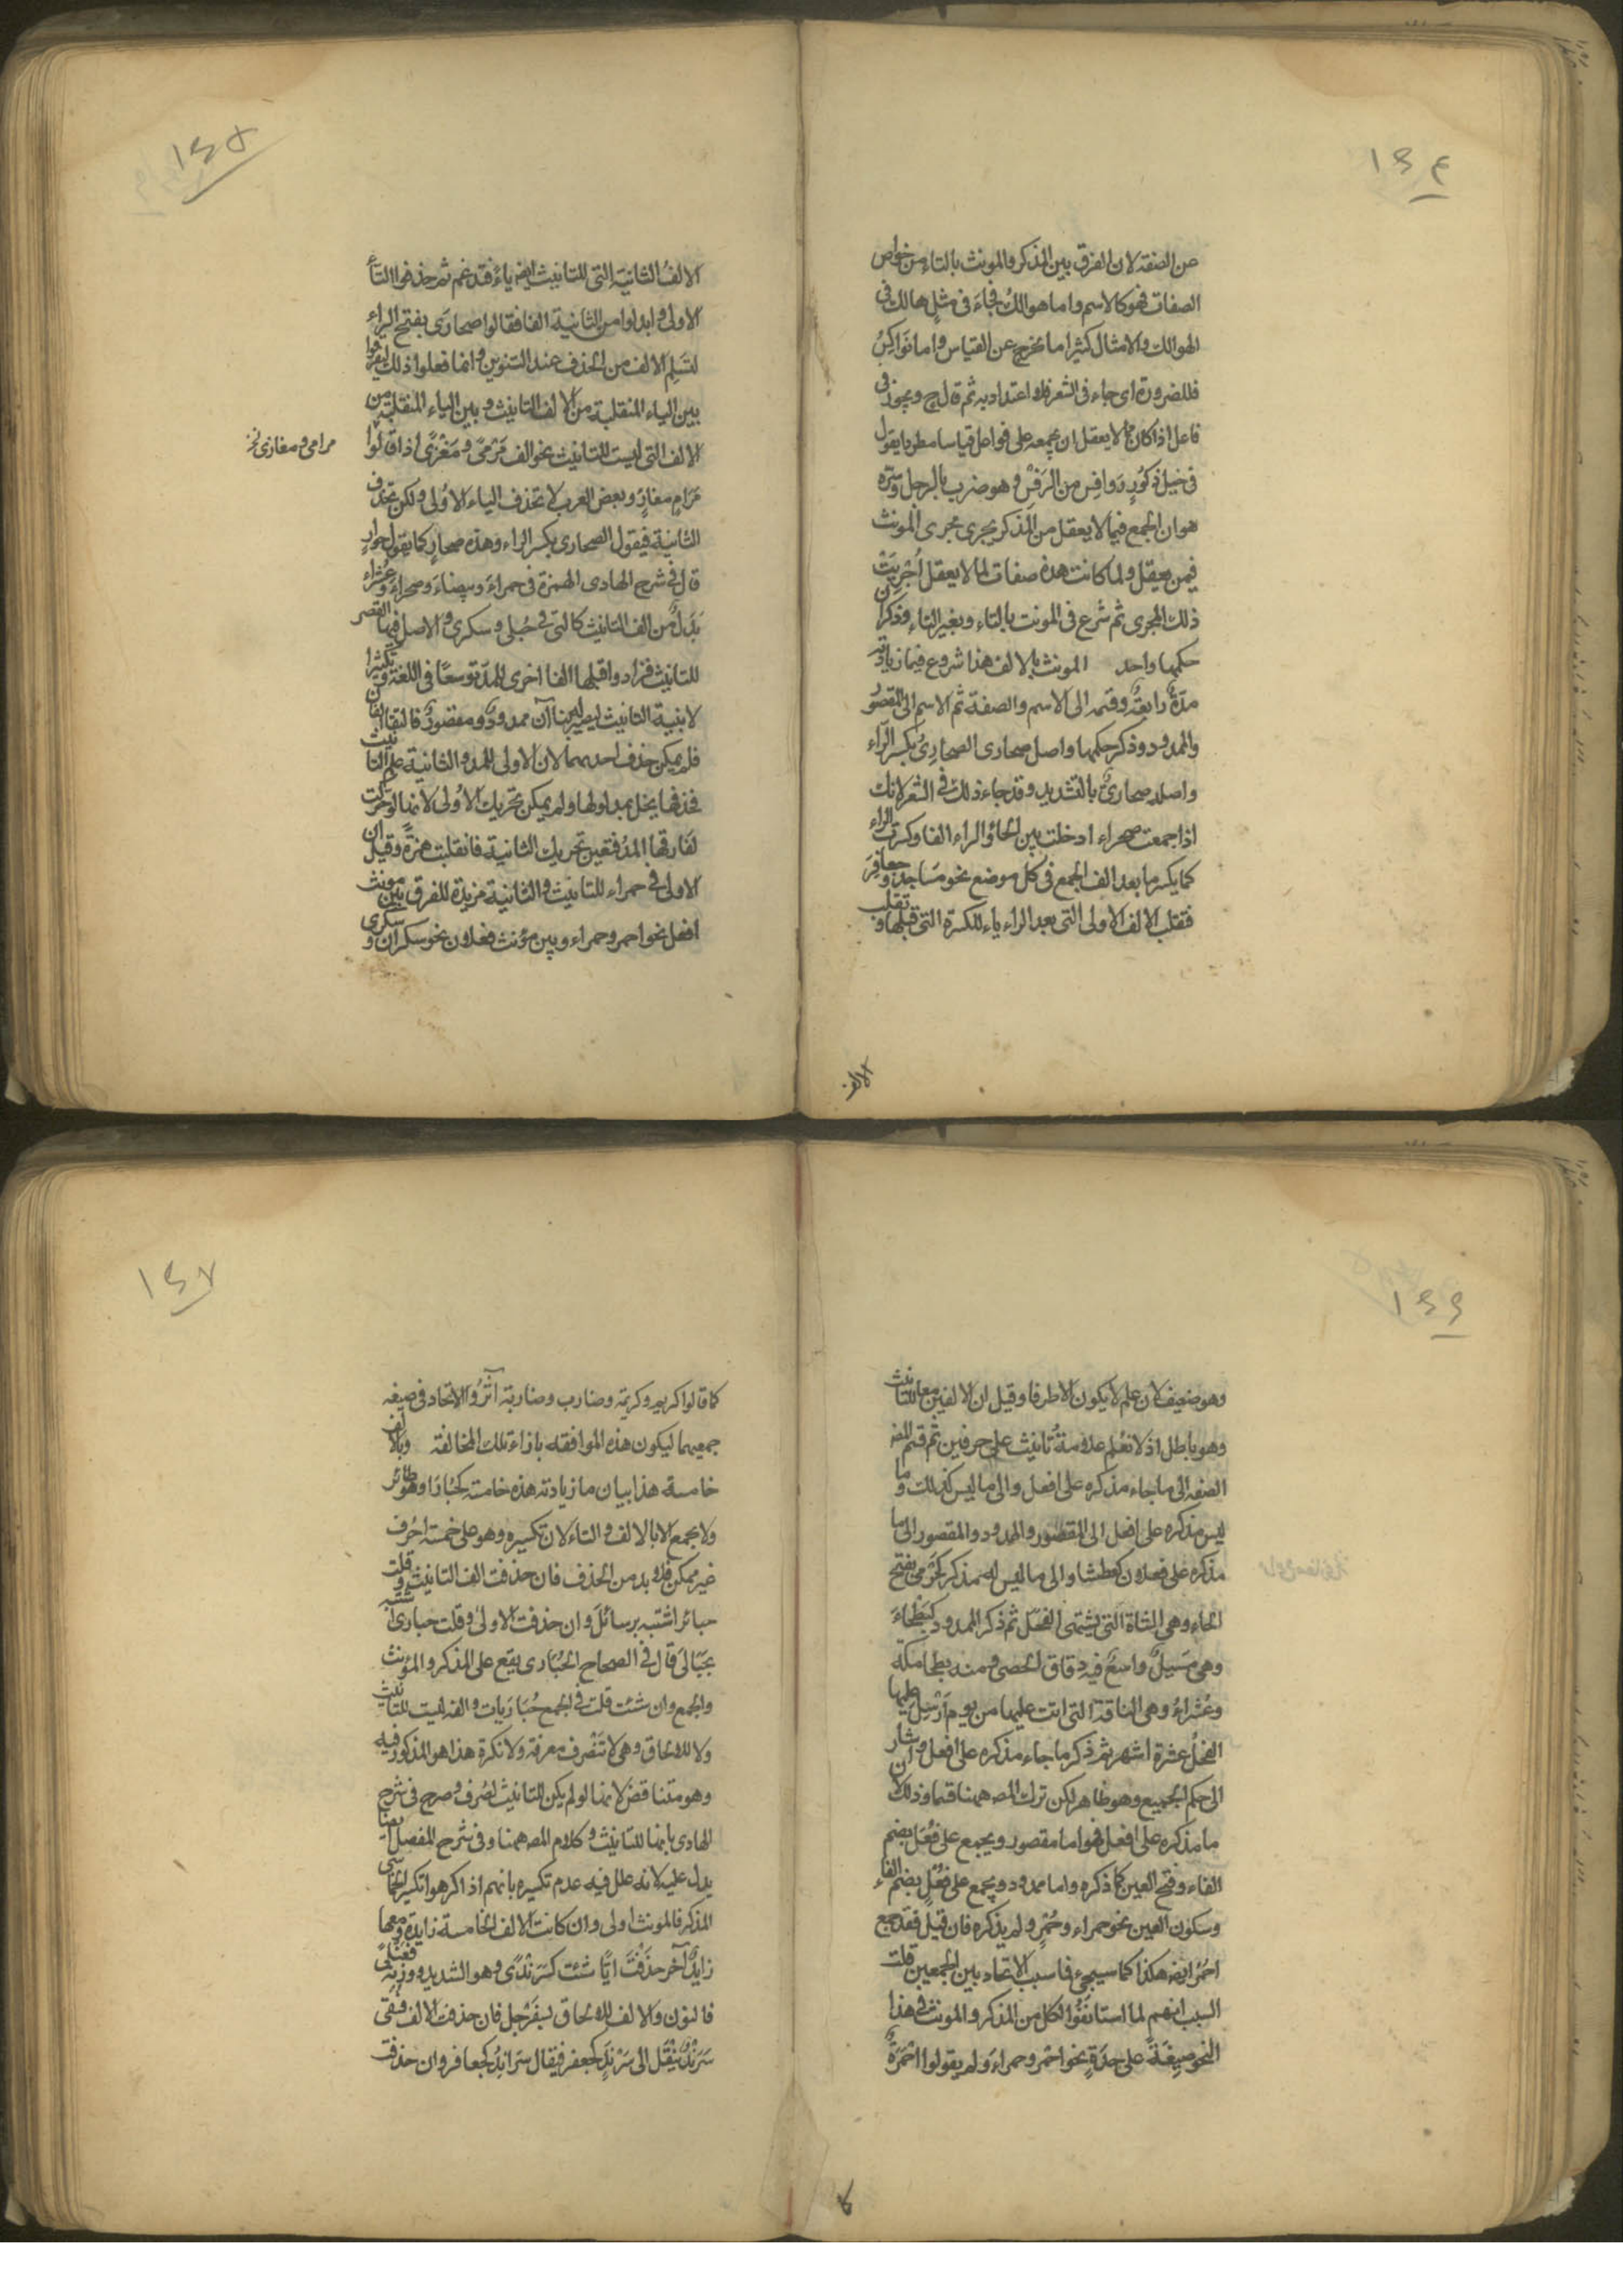 ١٤٤
عن الصفة لان الفرق بين المذكر والمونث بالتاء من خواص
الصفات فهو كالاسم واما هوالك فجاء في مثل هالك في
الهوالك والامثال كثيرا ما يخرج عن القياس واما نواكس
فللضرورة اى جاء في الشعر فلا اعتداد به ثم قال ج ويجوز في
فاعل اذا كان لما لا يعقل ان يجمعه على فواعل قياسا مطردا يقول
في خيل ذكور روافس من الرفس وهو ضرب بالرجل وسره
هو ان الجمع فيما لا يعقل من المذكر يجرى مجرى المونث
فيمن يعقل ولما كانت هذه صفات لما لا يعقل اجريت
ذلك المجرى ثم شرع في المونث بالتاء وبغير التاء وذكر ان
حكمها واحد المونث بالالف هذا شروع فيما زيادته
مدة رابعة وقسمه الى الاسم والصفة ثم الاسم الى المقصور
والممدود وذكر حكمها واصل صحارى الصحارى بكسر الراء
واصله صحارىّ بالتشديد وقد جاء ذلك في الشعر لانك
اذا جمعت صحراء ادخلت بين الحاء والراء الفا وكسرت الراء
كما يكسر ما بعد الف الجمع في كل موضع نحو مساجد وجعافر
فتقلب الالف الاولى التي بعد الراء ياء للكسرة التي قبلها وتقلب
الالف
١٤٥
الالف الثانية التي للتانيث ايضا ياء فتدغم ثم حذفوا الياء
الاولى وابدلوا من الثانية الفا فقالوا صحارى بفتح الراء
لتسلم الالف من الحذف عند التنوين وانما فعلوا ذلك ليفرقوا
بين الياء المنقلبة من الالف التانيث وبين الياء المنقلبة من
الالف التي ليست للتانيث نحو الف مرمى ومغزى اذا قالوا
مرامى ومغازى نخ
مرام مغاز وبعض العرب لا تحذف الياء الاولى ولكن تحذف
الثانية فيقول الصحارى بكسر الراء وهذه صحار كما يقول جوار
قال في شرح الهادى الهمزة في حمراء وبيضاء وصحراء وعشراء
بدل من الف التانيث كالتي في حبلى وسكرى والاصل فيها القصر
للتانيث فزادوا قبلها الفا اخرى للمد توسعا في اللغة وتكثيرا
لابنية التانيث ليصير لها بناآن ممدود ومقصور فالتقى الفان
فلم يمكن حذف احديهما لان الاولى للمد والثانية علم التانيث
فحذفها يخل بمدلولها ولم يمكن تحريك الاولى لانها لو حركت
لفارقها المد فتعين تحريك الثانية فانقلبت همزة وقيل ان
الاولى في حمراء للتانيث والثانية مزيدة للفرق بين مونث
افعل نحو احمر وحمراء وبين مؤنث فعلان نحو سكران وسكرى
١٤٦
وهو ضعيف لان علم لا يكون الا طرفا وقيل ان الالفين معا للتانيث
وهو باطل اذ لا نعلم علامة تانيث على حرفين ثم قسم المص
الصفة الى ما جاء مذكره على افعل والى ما ليس كذلك وما
ليس مذكره على افعل الى المقصور والممدود والمقصور الى ما
مذكره على فعلان كعطشا والى ما ليس له مذكر كحرمى بفتح
الحاء وهي الشاة التي يشتهى الفحل ثم ذكر الممدود كبطحاء
وهي مسيل واسع فيه دقاق الحصى ومنه بطحا مكة
وعشراء وهي الناقة التي اتت عليها من يوم ارسل عليها
الفحل عشرة اشهر ثم ذكر ما جاء مذكره على افعل وشار
الى حكم الجميع وهو ظاهر لكن ترك المص ههنا قسما وذلك ان
ما مذكره على افعل فهو اما مقصور ويجمع على فعل بضم
الفاء وفتح العين كما ذكره واما ممدود ويجمع على فعل بضم الفاء
وسكون العين نحو حمراء وحمر ولم يذكره فان قيل فقد جمع
احمر ايضا هكذا كما سيجيء فما سبب الاتحاد بين الجمعين قلت
السبب انهم لما استانفوا لكل من المذكر والمونث في هذا
النحو صيغة على حدة نحو احمر وحمراء ولم يقولوا احمرة
كا
١٤٧
كما قالوا كريم وكريمة وضارب وضاربة آثروا الاتحاد في صيغة
جمعيهما ليكون هذه الموافقة بازاء تلك المخالفة وبالالف
خامسة هذا بيان ما زيادته هذه خامسة كحبارا وهو طائر
ولا يجمع الا بالالف والتاء لان تكسيره وهو على خمسة احرف
غير ممكن فلا بد من الحذف فان حذفت الف التانيث وقلت
حبائر اشتبه برسائل وان حذفت الاولى وقلت حبارى اشتبه
بحبالى قال في الصحاح الحبارى يقع على المذكر والمؤنث
والجمع وان شئت قلت في الجمع حباريات والفه ليست للتانيث
ولا للالحاق وهي لا تنصرف معرفة ولا نكرة هذا هو المذكور فيه
وهو متناقض لانها لو لم يكن للتانيث لصرف وصرح في شرح
الهادى بانها للتانيث وكلام المص ههنا وفي شرح المفصل ايضا
يدل عليه لانه علل فيه عدم تكسيره بانهم اذا كرهوا تكسير الخماسى
المذكر فالمونث اولى وان كانت الالف الخامسة زايدة ومعها
زايد آخر حذفت ايا شئت كسرندى وهو الشديد ووزنه فعنلى
فالنون والالف للالحاق بسفرجل فان حذفت الالف فبقى
سرند ينقل الى سرند كجعفر فيقال سراند كجعافر وان حذفت